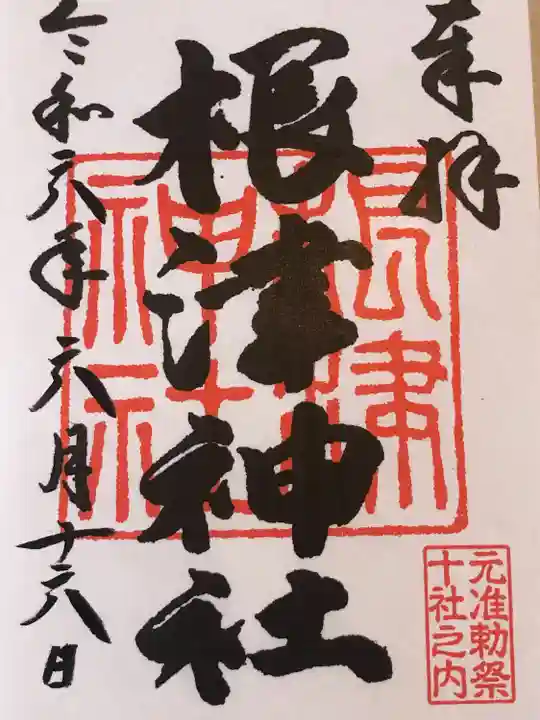 奉拝
根津神社
令和六年六月十六日
根津
神社
元准勅祭
十社之内